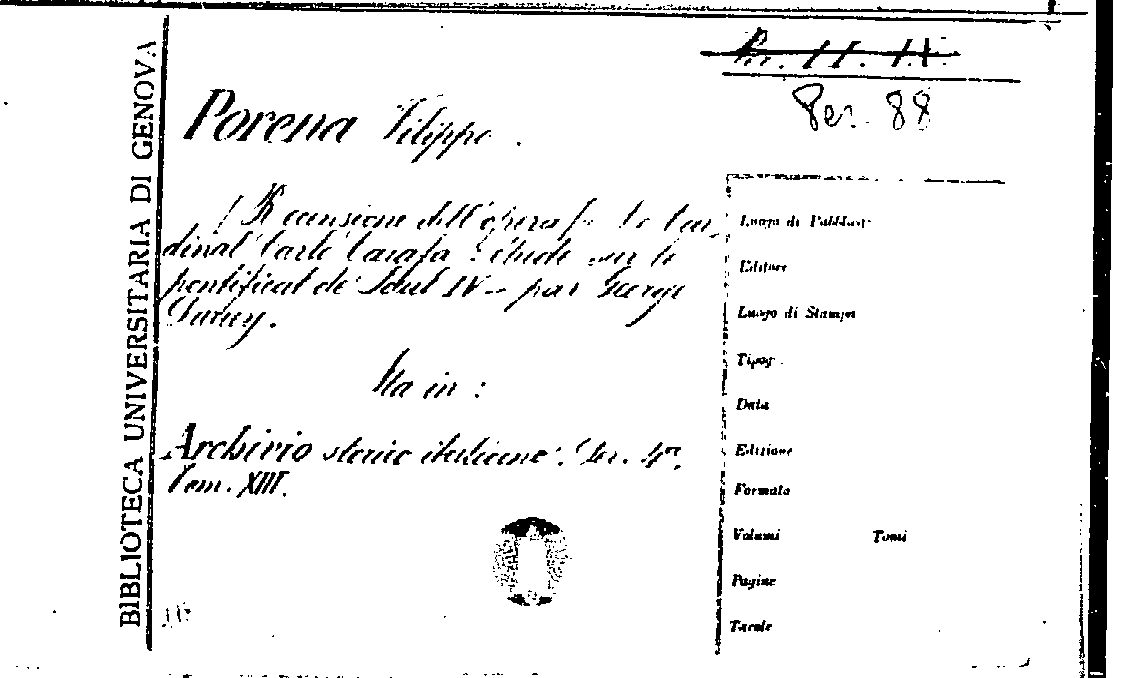 BIBLIOTECA UNIVERSITARIA DI GENOVA
Per. 88
Porena Filippo.
Recensione dell'opera Le Car-
dinal Carlo Carafa Etude sur le
pontificat de Paul IV - par George
Duruy.
Sta in:
Archivio storico italiano. Ser. 4ª.
Tom. XIII.
Luogo di Pubblic.
Editore
Luogo di Stampa
Tipog.
Data
Edizione
Formato
Volumi Tomi
Pagine
Tavole